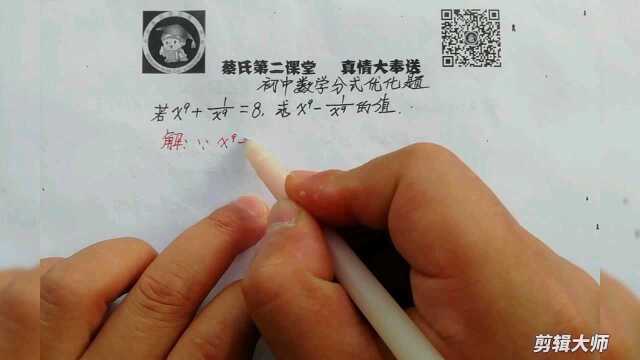 蔡氏第二课堂 真情大奉送
初中数学分式优化题
若x⁹+1/x⁹=8,求x⁹-1/x⁹的值.
解:∵x⁹-
剪辑大师